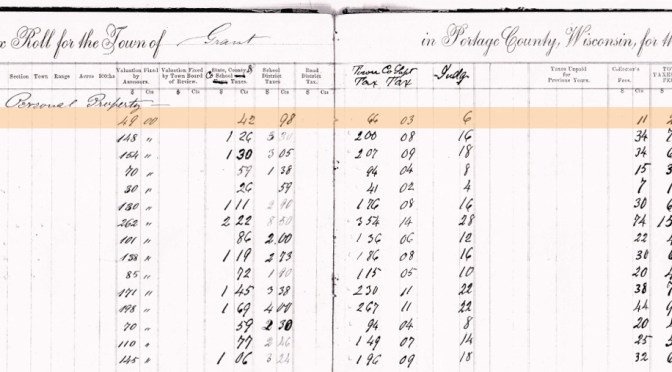 x Roll for the Town of Grant in Portage County, Wisconsin, for th
Section Town Range Acres 100ths Valuation Fixed by Assessors. Valuation Fixed by Town Board of Review. State, County & School Taxes. School District Taxes. Road District Tax. Town Tax Co Supt Tax Judg. Taxes Unpaid for Previous Years. Collector's Fees.
$ Cts $ Cts $ Cts $ Cts $ Cts $ Cts $ Cts
Personal Property
49 00 42 98 66 03 6 11
148 " 1 26 3 200 08 16 34
154 " 1 30 3 05 207 09 18 34
70 " 59 1 38 94 04 8 15
30 " 26 59 41 02 4 7
130 " 1 11 176 08 16 30
262 " 2 22 354 14 28 74
101 " 86 2.00 136 06 12 22
138 " 1 19 2 73 186 08 16 30
85 " 72 115 05 10 20
171 " 1 45 3 38 230 11 22 38
198 " 1 69 4 00 267 11 22 44
70 " 59 2 30 94 04 8 20
110 " 77 2 149 07 14 25
145 " 1 06 3 24 196 09 18 32